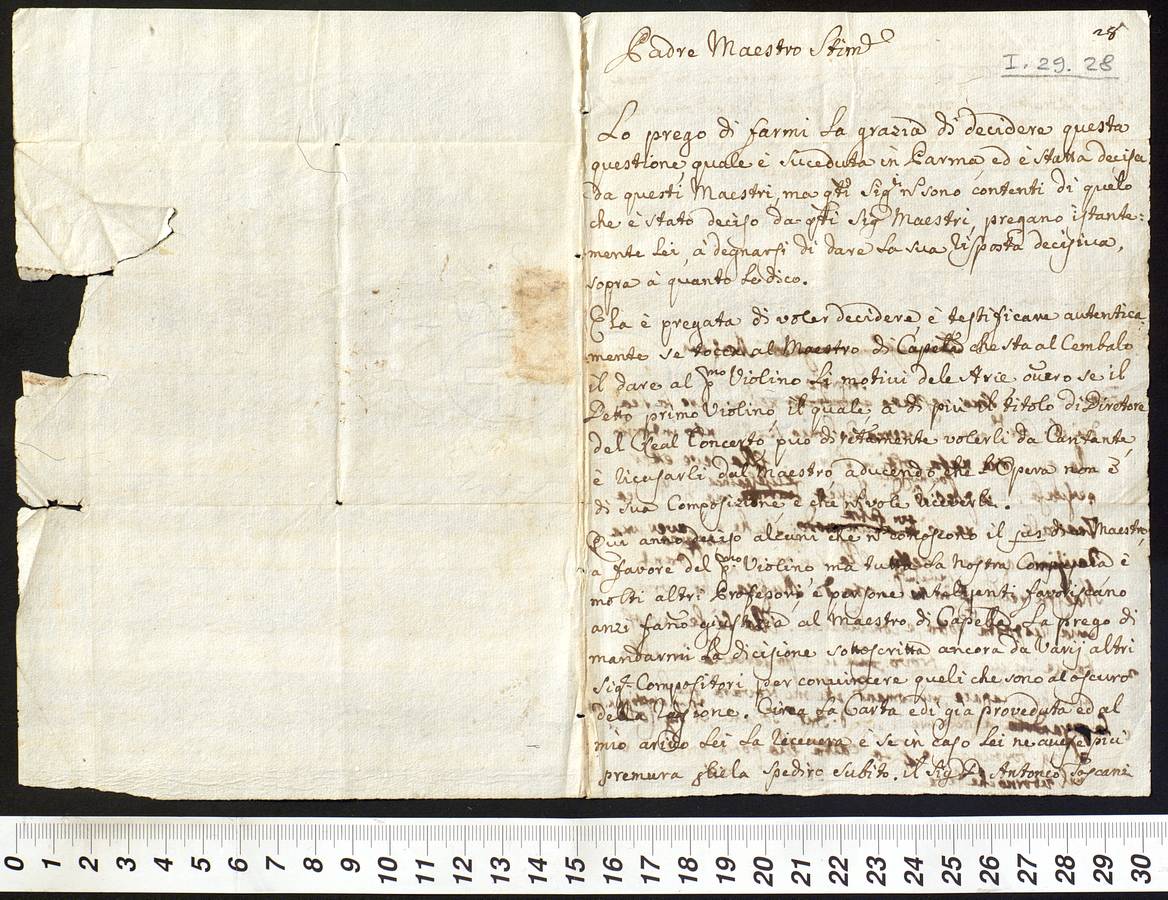 28
Padre Maestro Stimo
I. 29. 28
Lo prego di farmi la grazia di decidere questa
questione, quale è suceduta in Parma, ed è statta decisa
da questi Maestri, ma qti Sigri no sono contenti di quelo
che è stato deciso da qti Sig Maestri, pregano istante:
mente Lei, à degnarsi di dare la sua risposta decisiva,
sopra à quanto le dico.
Ela è pregata di voler decidere, è testificare autentica:
mente se tocca al Maestro di Capela che sta al Cembalo
il dare al pmo Violino li motivi dele Arie overo se il
Detto primo Violino, il quale à di più il titolo di Diretore
del Real Concerto, può diretamente volerli da Cantante,
è ricusarli dal Maestro, aducendo che l'Opera non è
di sua Composizione è che no vole riceverli.
Qui anno deciso alcuni che no conoscono il jus di Maestro,
a favore del pmo Violino ma tutta la nostra Compagnia è
molti altri Profesori, e persone inteligenti favoriscano
anzi fano giustizia al Maestro di Capela. La prego di
mandarmi la dicisione sottoscritta ancora da Varij altri
Sigri Compositori per convincere queli che sono al oscuro
della ragione. Circa la Carta e di già proveduta ed al
mio arivo Lei la riceverà è se in caso Lei ne avese più
premura gliela spedirò subito, il Sig D. Antonio Toscani
0 1 2 3 4 5 6 7 8 9 10 11 12 13 14 15 16 17 18 19 20 21 22 23 24 25 26 27 28 29 30